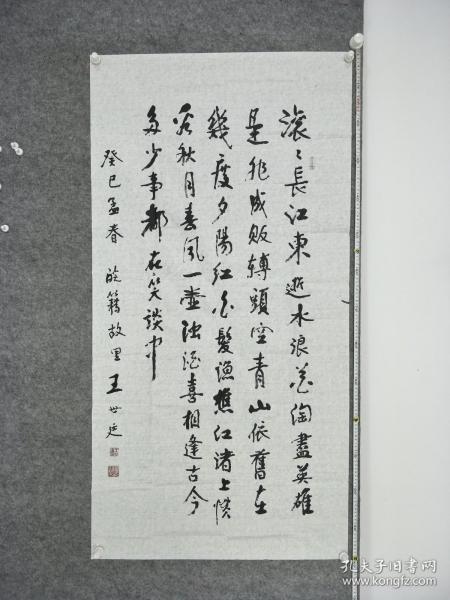 滚〻長江東逝水浪花淘盡英雄
是非成敗轉頭空青山依舊在
幾度夕陽紅白髮漁樵江渚上慣
看秋月春風一壺濁酒喜相逢古今
多少事都在笑談中
癸巳孟春 阮籍故里王世廷
孔夫子旧书网
www.kongfz.com